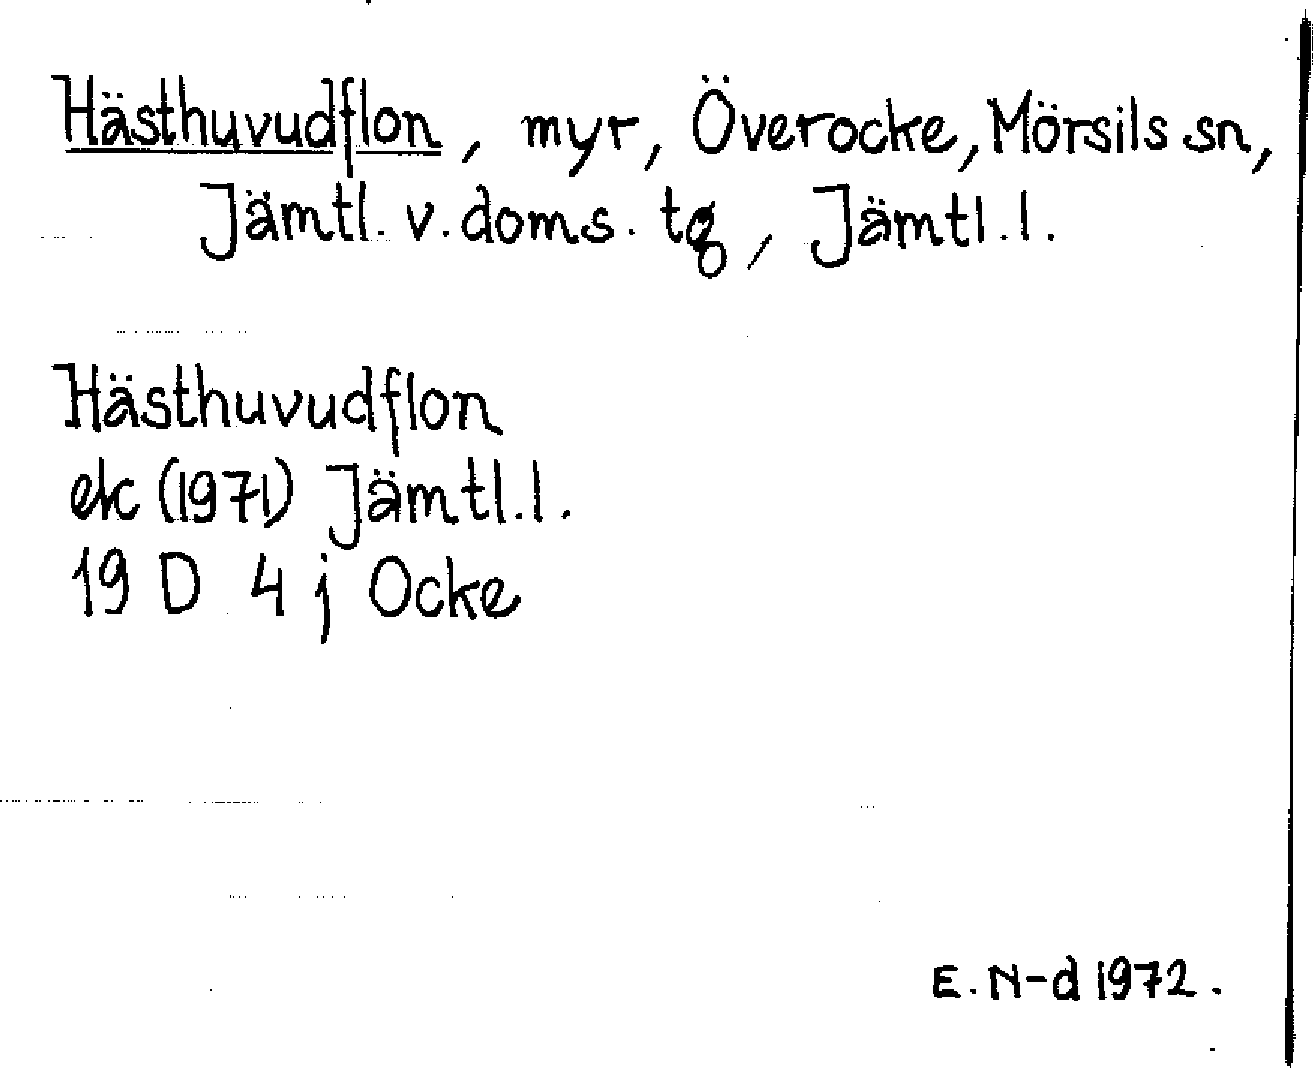 Hästhuvudflon, myr, Överocke, Mörsils sn,
Jämtl. v. doms. tg, Jämtl. l.
Hästhuvudflon
ek (1971) Jämtl. l.
19 D 4 j Ocke
E. N-d 1972.